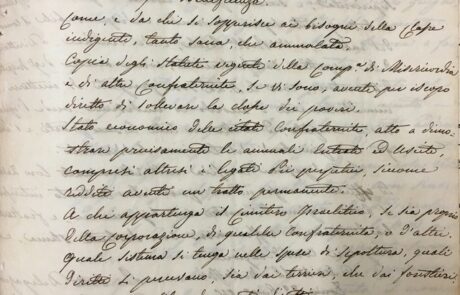 Come, e da chi si sopperisce ai bisogni della Classe
indigente, tanto sana, che ammalata.
Copia degli Statuti vigenti della Comp.ª di Misericordia
e di altre Confraternite, se vi sono, avente per iscopo
diretto di sollevare la classe dei poveri.
Stato economico delle citate Confraternite, atto a dimo-
strare precisamente le annuali Entrate ed Uscite,
compresi altresì i legati Pii perpetui, siccome
reddite avente un tratto permanente.
A chi appartenga il Cimitero Israelitico, se sia proprio
della Corporazione, di qualche Confraternita, o d'altri.
Quale sistema si tenga nelle spese di sepoltura, quali
Diritti si percevano, sia dai terrieri, che dai forestieri